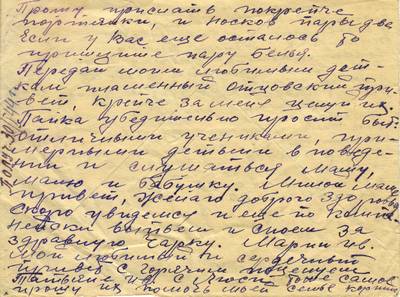 Прошу прислать покрепче
портянки, и носков пары две
Если у Вас еще осталось то
пришлите пару белья.
Передай моим любимым дет-
кам пламенный отцовский при-
вет, крепче за меня целуй их.
Папка убедительно просит быть
отличными учениками, при-
мерными детьми в поведе-
нии и слушаться маму,
маню и бабушку. Милой маме
привет, желаю доброго здоровья
скоро увидемся и еще по
выпьем и споем за
здравную чарку. Марии ив.
мой любимой и сердечный
привет с горячим поцелуем
прошу их помочь моей семье